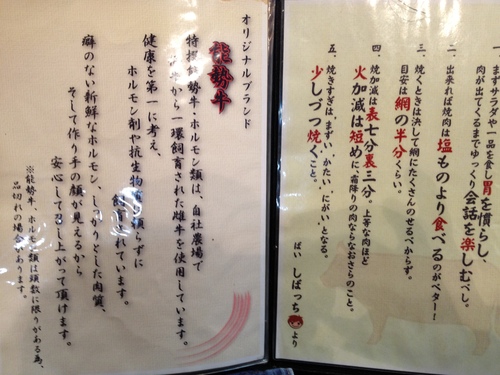 一、まずサラダや一品を食し胃を慣らし、
肉が出てくるまでゆっくり会話を楽しむべし。
二、出来れば焼肉は塩ものより食べるのがベター！
三、焼くときは決して網にたくさんのせるべからず。
目安は網の半分くらい。
四、焼加減は表七分裏三分。上等な肉ほど
火加減は短めに、霜降りの肉ならなおさらのこと。
五、焼きすぎは、まずい、かたい、にがい、となる。
少しづつ焼くこと。
ばい しばっち より
オリジナルブランド
能勢牛
特撰能勢牛・ホルモン類は、自社農場で
牛から一環飼育された雌牛を使用しています。
健康を第一に考え、
ホルモン剤や抗生物 頼らずに
飼育されています。
癖のない新鮮なホルモン、しっかりとした肉質、
そして作り手の顔が見えるから
安心してめし上がって頂けます。
※能勢牛、ホルモン類は頭数に限りがある為、
品切れの場合 あります。